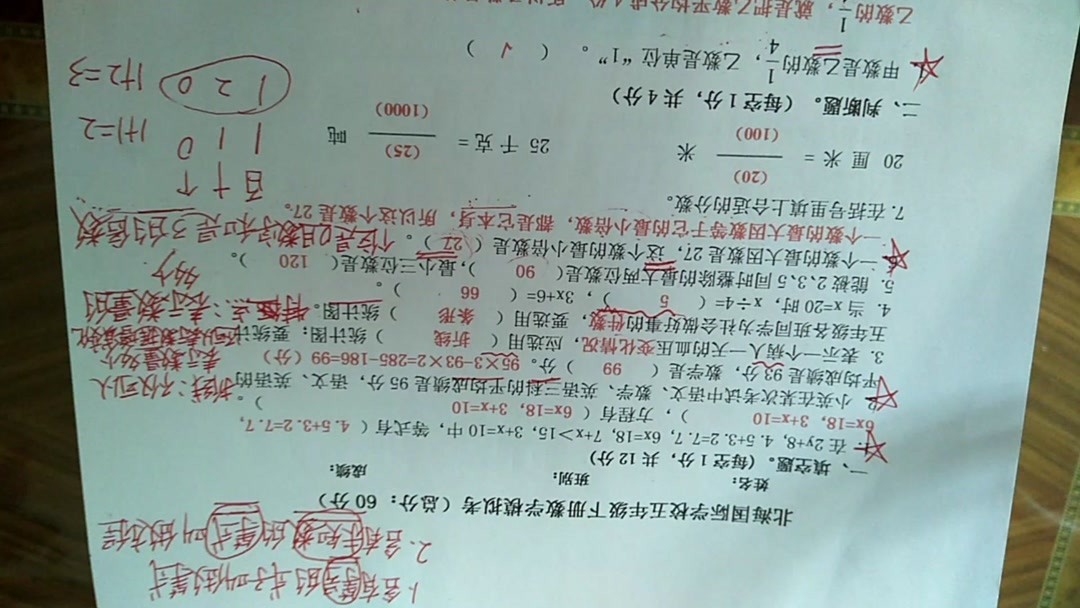 1.含有等号的式子叫做等式
2.含有未知数的等式叫做方程
北海国际学校五年级下册数学模拟考（总分：60分）
姓名： 班别： 成绩：
一、填空题。（每空1分，共12分）
在 2y+8, 4.5+3.2=7.7, 6x=18, 7+x＞15, 3+x=10 中，等式有（ 4.5+3.2=7.7,
6x=18, 3+x=10 ），方程有（ 6x=18, 3+x=10 ）。
小英在某次考试中语文、数学、英语三科的平均成绩是95分，语文、英语的
平均成绩是93分，数学是（ 99 ）分。95×3-93×2=285-186=99（分）
3. 表示一个病人一天的血压变化情况，应选用（ 折线 ）统计图；要统计
五年级各班同学为社会做好事的件数，要选用（ 条形 ）统计图。
折线：不仅可以
表示数量多少
表示数量的
多少
4. 当 x=20 时，x÷4=（ 5 ），3x+6=（ 66 ）。
5. 能被 2、3、5 同时整除的最大两位数是（ 90 ），最小三位数是（ 120 ）。
一个数的最大因数是 27，这个数的最小倍数是（ 27 ）。
个位是0且数字和是3的倍数
一个数的最大因数等于它的最小倍数，都是它本身，所以这个数是 27。
7. 在括号里填上合适的分数。
20 厘米 = (20)/(100) 米 25 千克 = (25)/(1000) 吨
百 十 个
1 1 0 1+1=2
1 2 0 1+2=3
二、判断题。（每空1分，共4分）
甲数是乙数的1/4，乙数是单位“1”。 （ √ ）